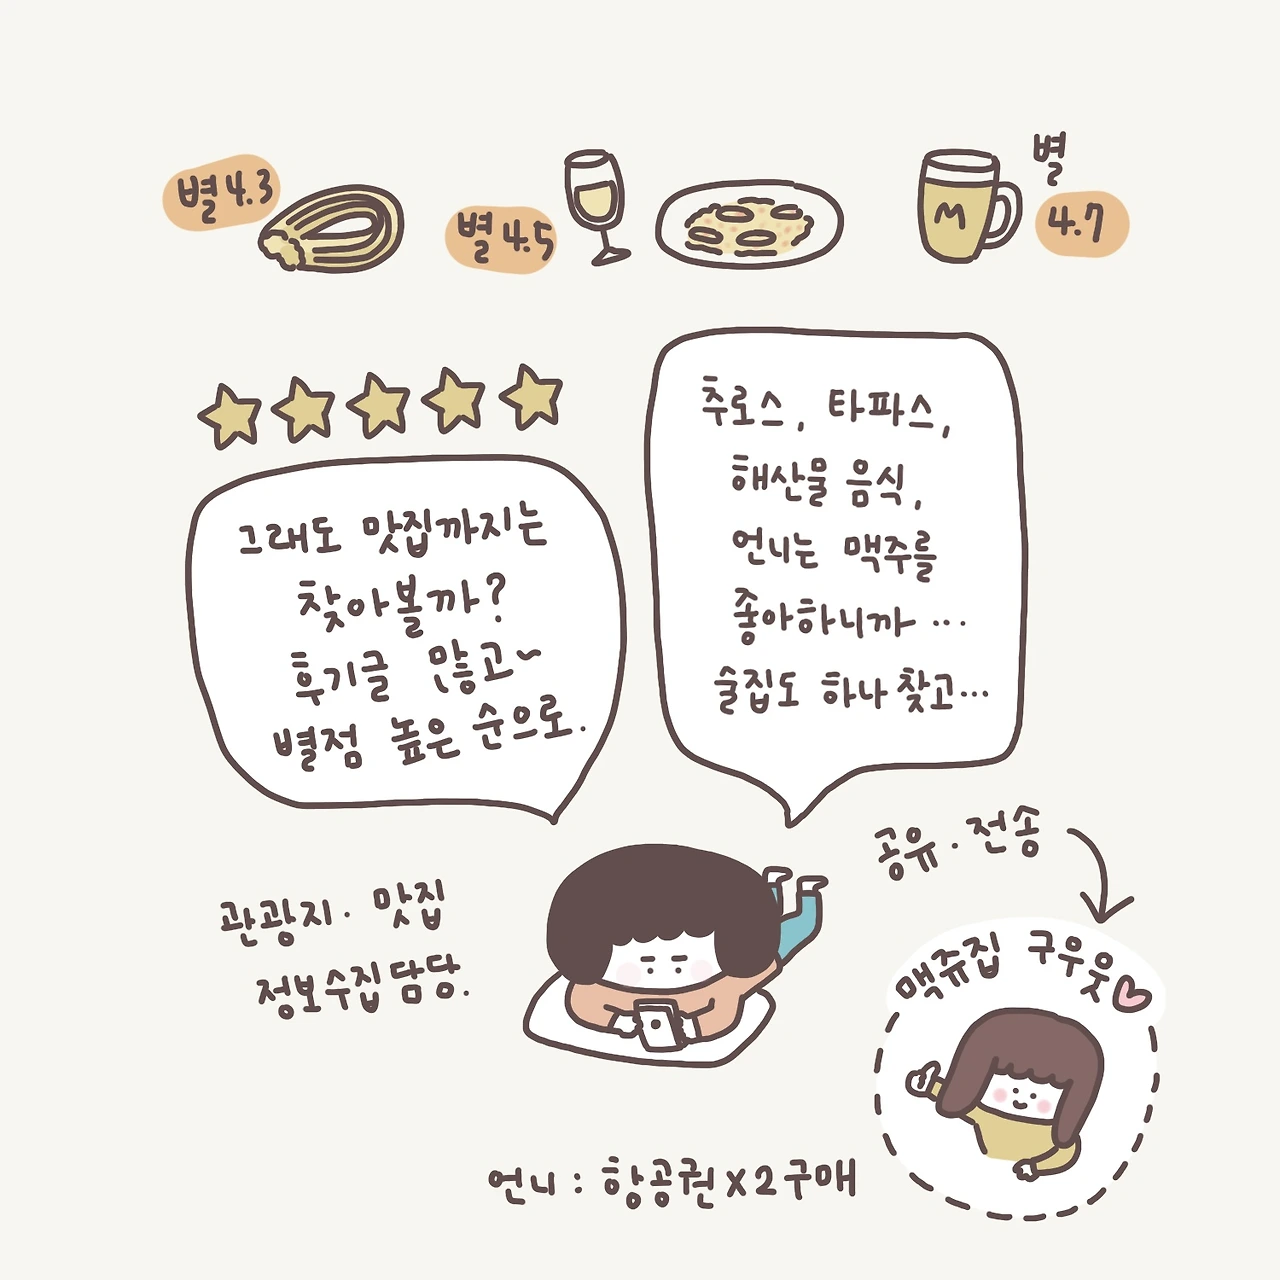 별 4.3
별 4.5
M
별
4.7
그래도 맛집까지는
찾아볼까?
후기글 많고~
별점 높은 순으로.
추로스, 타파스,
해산물 음식,
언니는 맥주를
좋아하니까...
술집도 하나 찾고...
관광지·맛집
정보수집 담당.
공유·전송
맥쥬집 구우웃♡
언니 : 항공권x2구매